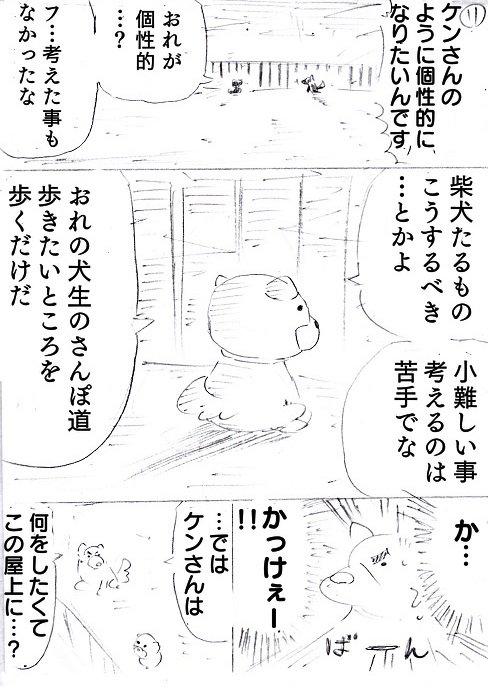 11
ケンさんの
ように個性的に
なりたいんです
おれが
個性的
…?
フ…考えた事も
なかったな
柴犬たるもの
こうするべき
…とかよ
小難しい事
考えるのは
苦手でな
おれの犬生のさんぽ道
歩きたいところを
歩くだけだ
か…
かっけぇー
!!
ばーん
…では
ケンさんは
何をしたくて
この屋上に…?